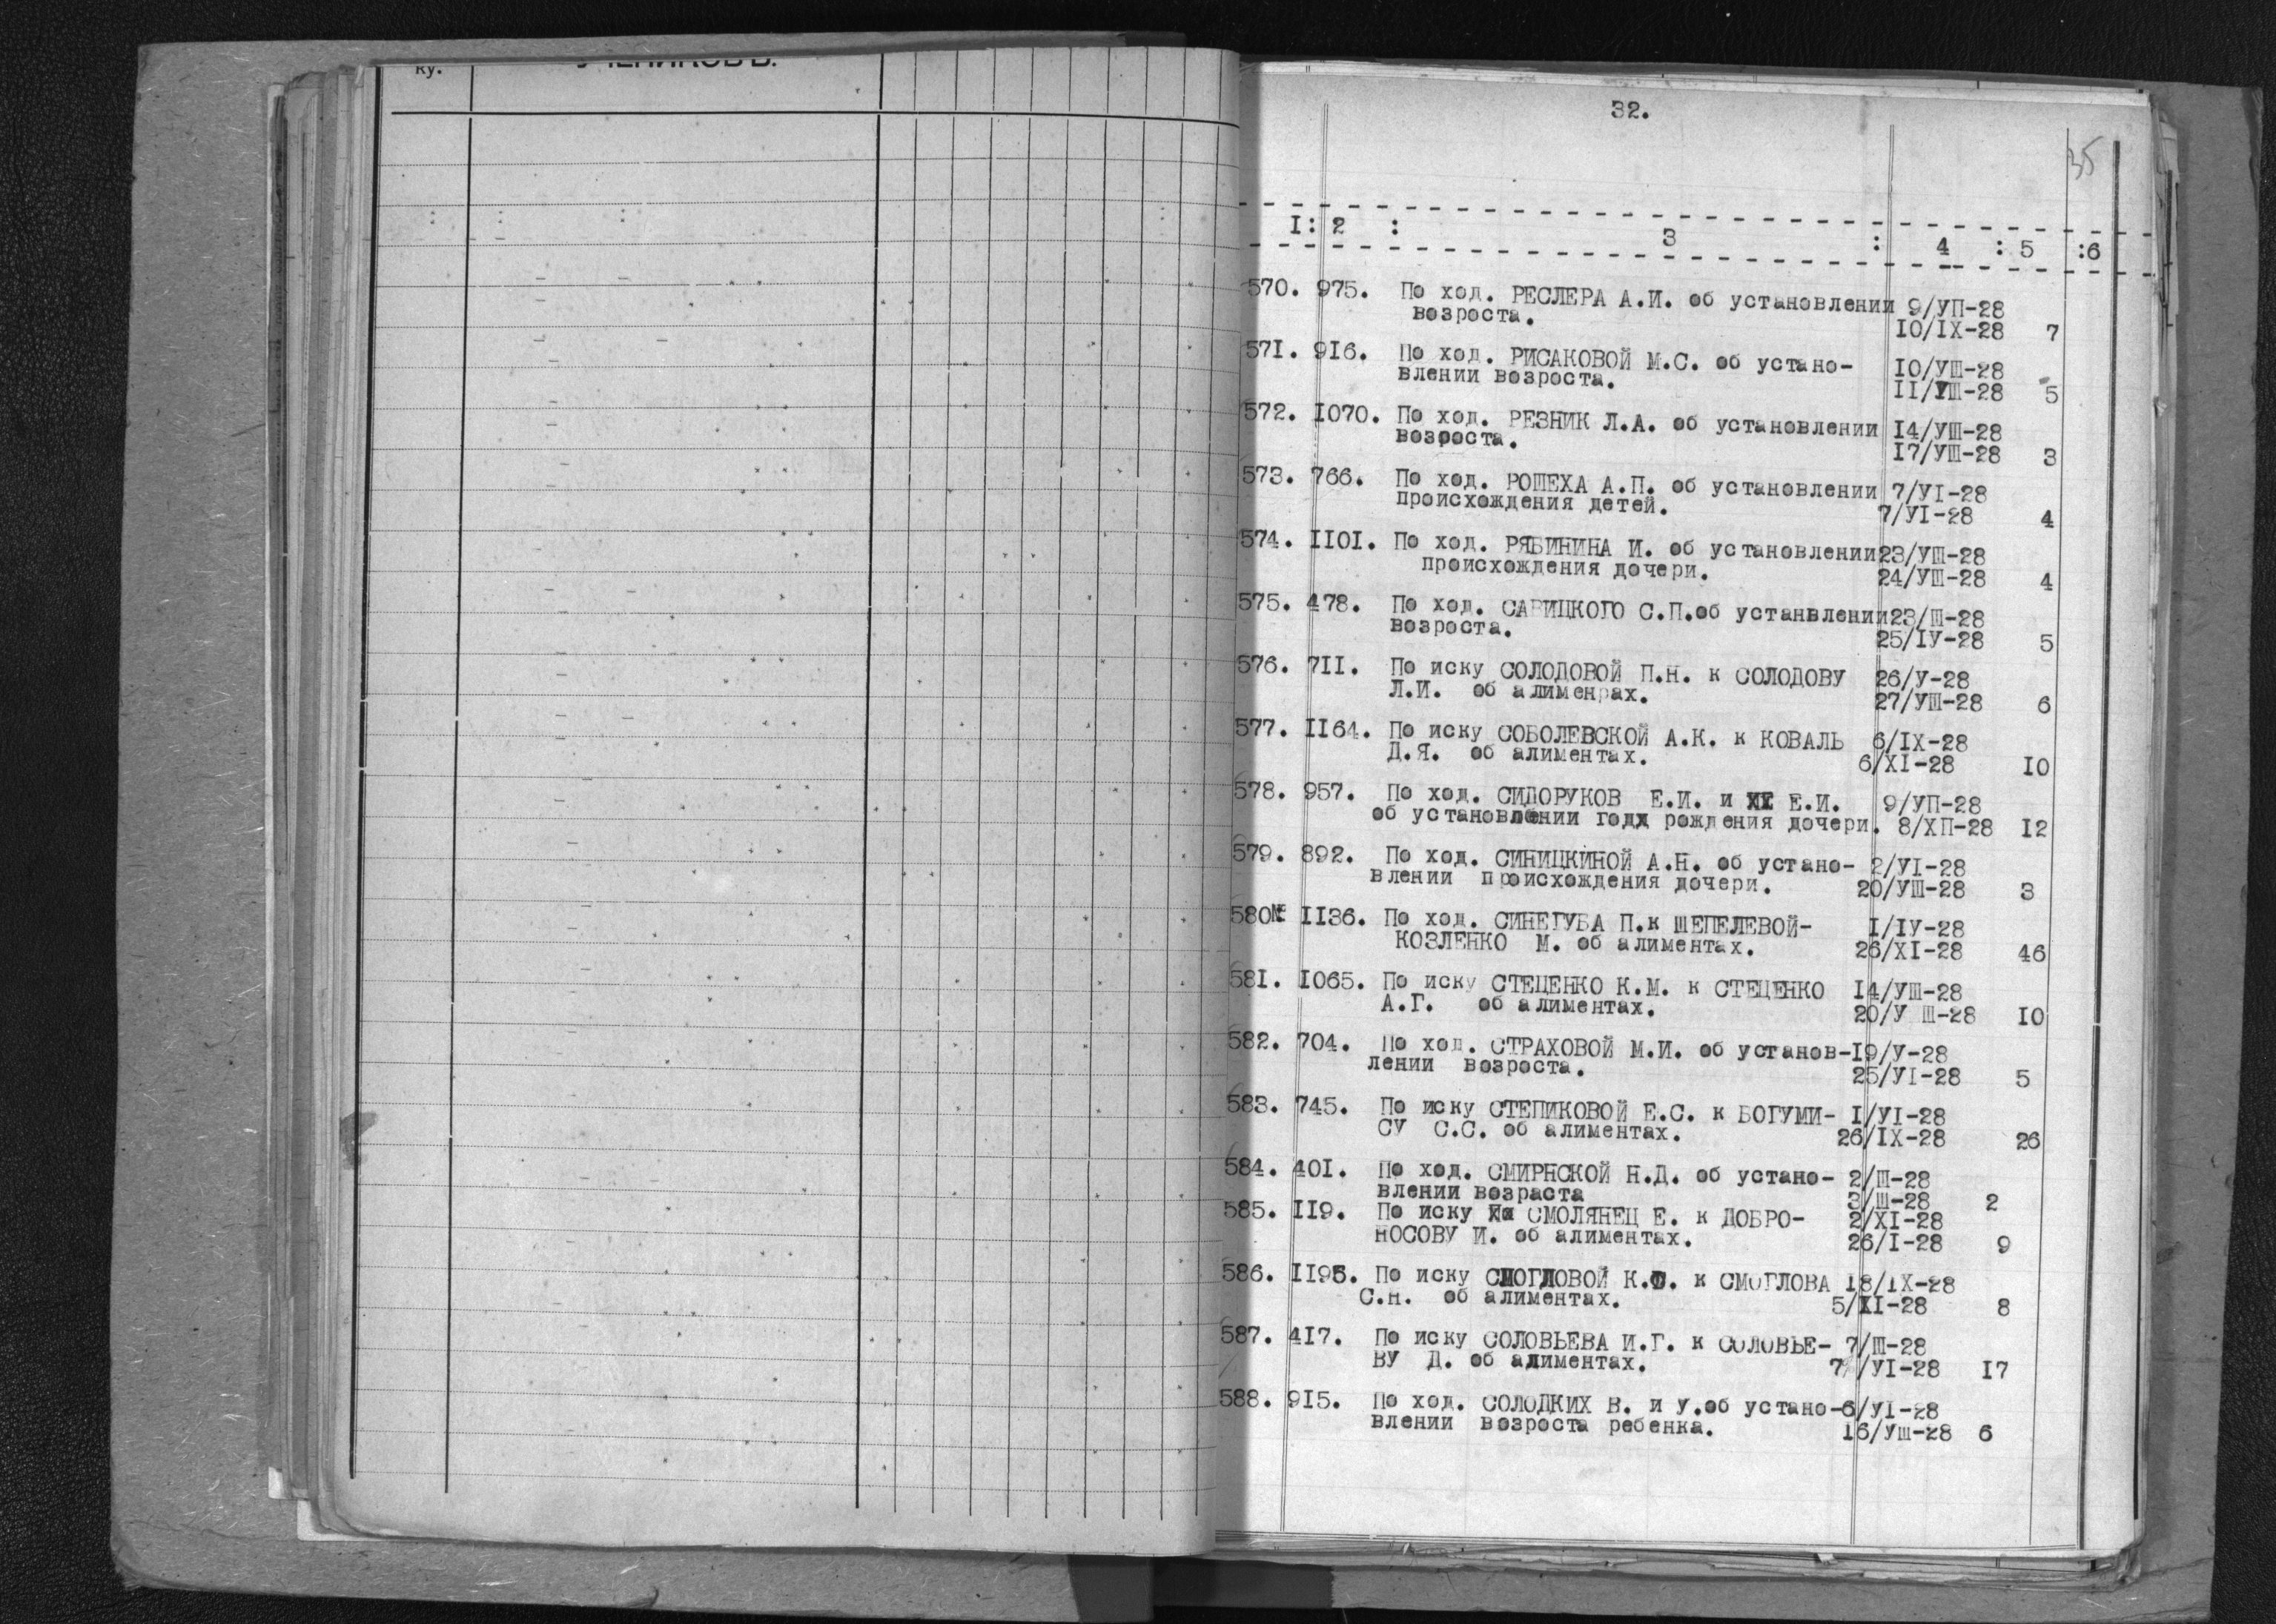 ку.
УЧЕНИКОВЪ.
32.
35
I: 2 : 3 : 4 : 5 :6
570. 975. По ход. РЕСЛЕРА А.И. об установлении 9/УП-28
возроста. I0/IX-28 7
571. 916. По ход. РИСАКОВОЙ М.С. об устано- I0/УШ-28
влении возроста. II/УШ-28 5
572. I070. По ход. РЕЗНИК Л.А. об установлении I4/УШ-28
возроста. I7/УШ-28 3
573. 766. По ход. РОШЕХА А.П. об установлении 7/УI-28
происхождения детей. 7/УI-28 4
574. II0I. По ход. РЯБИНИНА И. об установлении 23/УШ-28
происхождения дочери. 24/УШ-28 4
575. 478. По ход. САВИЦКОГО С.П.об устанвлении 23/Ш-28
возроста. 25/IУ-28 5
576. 7II. По иску СОЛОДОВОЙ П.Н. к СОЛОДОВУ 26/У-28
Л.И. об алименрах. 27/УШ-28 6
577. II64. По иску СОБОЛЕВСКОЙ А.К. к КОВАЛЬ 6/IX-28
Д.Я. об алиментах. 6/XI-28 I0
578. 957. По ход. СИДОРУКОВ Е.И. и Е.И. 9/УП-28
об установлении года рождения дочери. 8/ХП-28 I2
579. 892. По ход. СИНИЦКИНОЙ А.Н. об устано- 2/УI-28
влении происхождения дочери. 20/УШ-28 3
580№ II36. По ход. СИНЕГУБА П.к ШЕПЕЛЕВОЙ- I/IУ-28
КОЗЛЕНКО М. об алиментах. 26/XI-28 46
58I. I065. По иску СТЕЦЕНКО К.М. к СТЕЦЕНКО I4/УШ-28
А.Г. об алиментах. 20/У Ш-28 I0
582. 704. По ход. СТРАХОВОЙ М.И. об установ-I9/У-28
лении возроста. 25/УI-28 5
583. 745. По иску СТЕПИКОВОЙ Е.С. к БОГУМИ- I/УI-28
СУ С.С. об алиментах. 26/IX-28 26
584. 40I. По ход. СМИРНСКОЙ Н.Д. об устано- 2/Ш-28
влении возраста 3/Ш-28 2
585. II9. По иску СМОЛЯНЕЦ Е. к ДОБРО- 2/XI-28
НОСОВУ И. об алиментах. 26/I-28 9
586. II95. По иску СМОГЛОВОЙ К. к СМОГЛОВА I8/IX-28
С.Н. об алиментах. 5/XI-28 8
587. 4I7. По иску СОЛОВЬЕВА И.Г. к СОЛОВЬЕ- 7/Ш-28
ВУ Д. об алиментах. 7/УI-28 I7
588. 9I5. По ход. СОЛОДКИХ В. и У.об устано-6/УI-28
влении возроста ребенка. I6/УШ-28 6